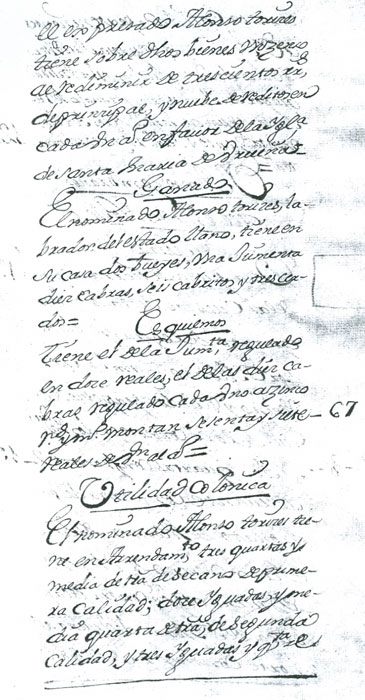 el expresado Alonso torres
tiene sobre dhos bienes un zenso
de redimir de trescientos rs
de prinzipal, y nuebe de reditos en
cada un año en favor de la Ygla
de Santa Maria de
Ganado
El nominado Alonso torres, la-
brador del estado llano, tiene en
su casa dos bueyes, una Jumenta
diez cabras, seis cabritos, y tres cer-
dos=
Esquilmos
Tiene el de la Jumta regulado
en doce reales, el de las diez ca-
bras regulado cada uno a zinco
rs montan sesenta y siete - 67
reales de
Utilidad Colonica
El nominado Alonso torres tie-
ne en Arrendamto tres quartas y
media de tra de secano de prime-
ra calidad; doce Yguadas, y me-
dia quarta de tra, de segunda
calidad, y tres Yguadas y